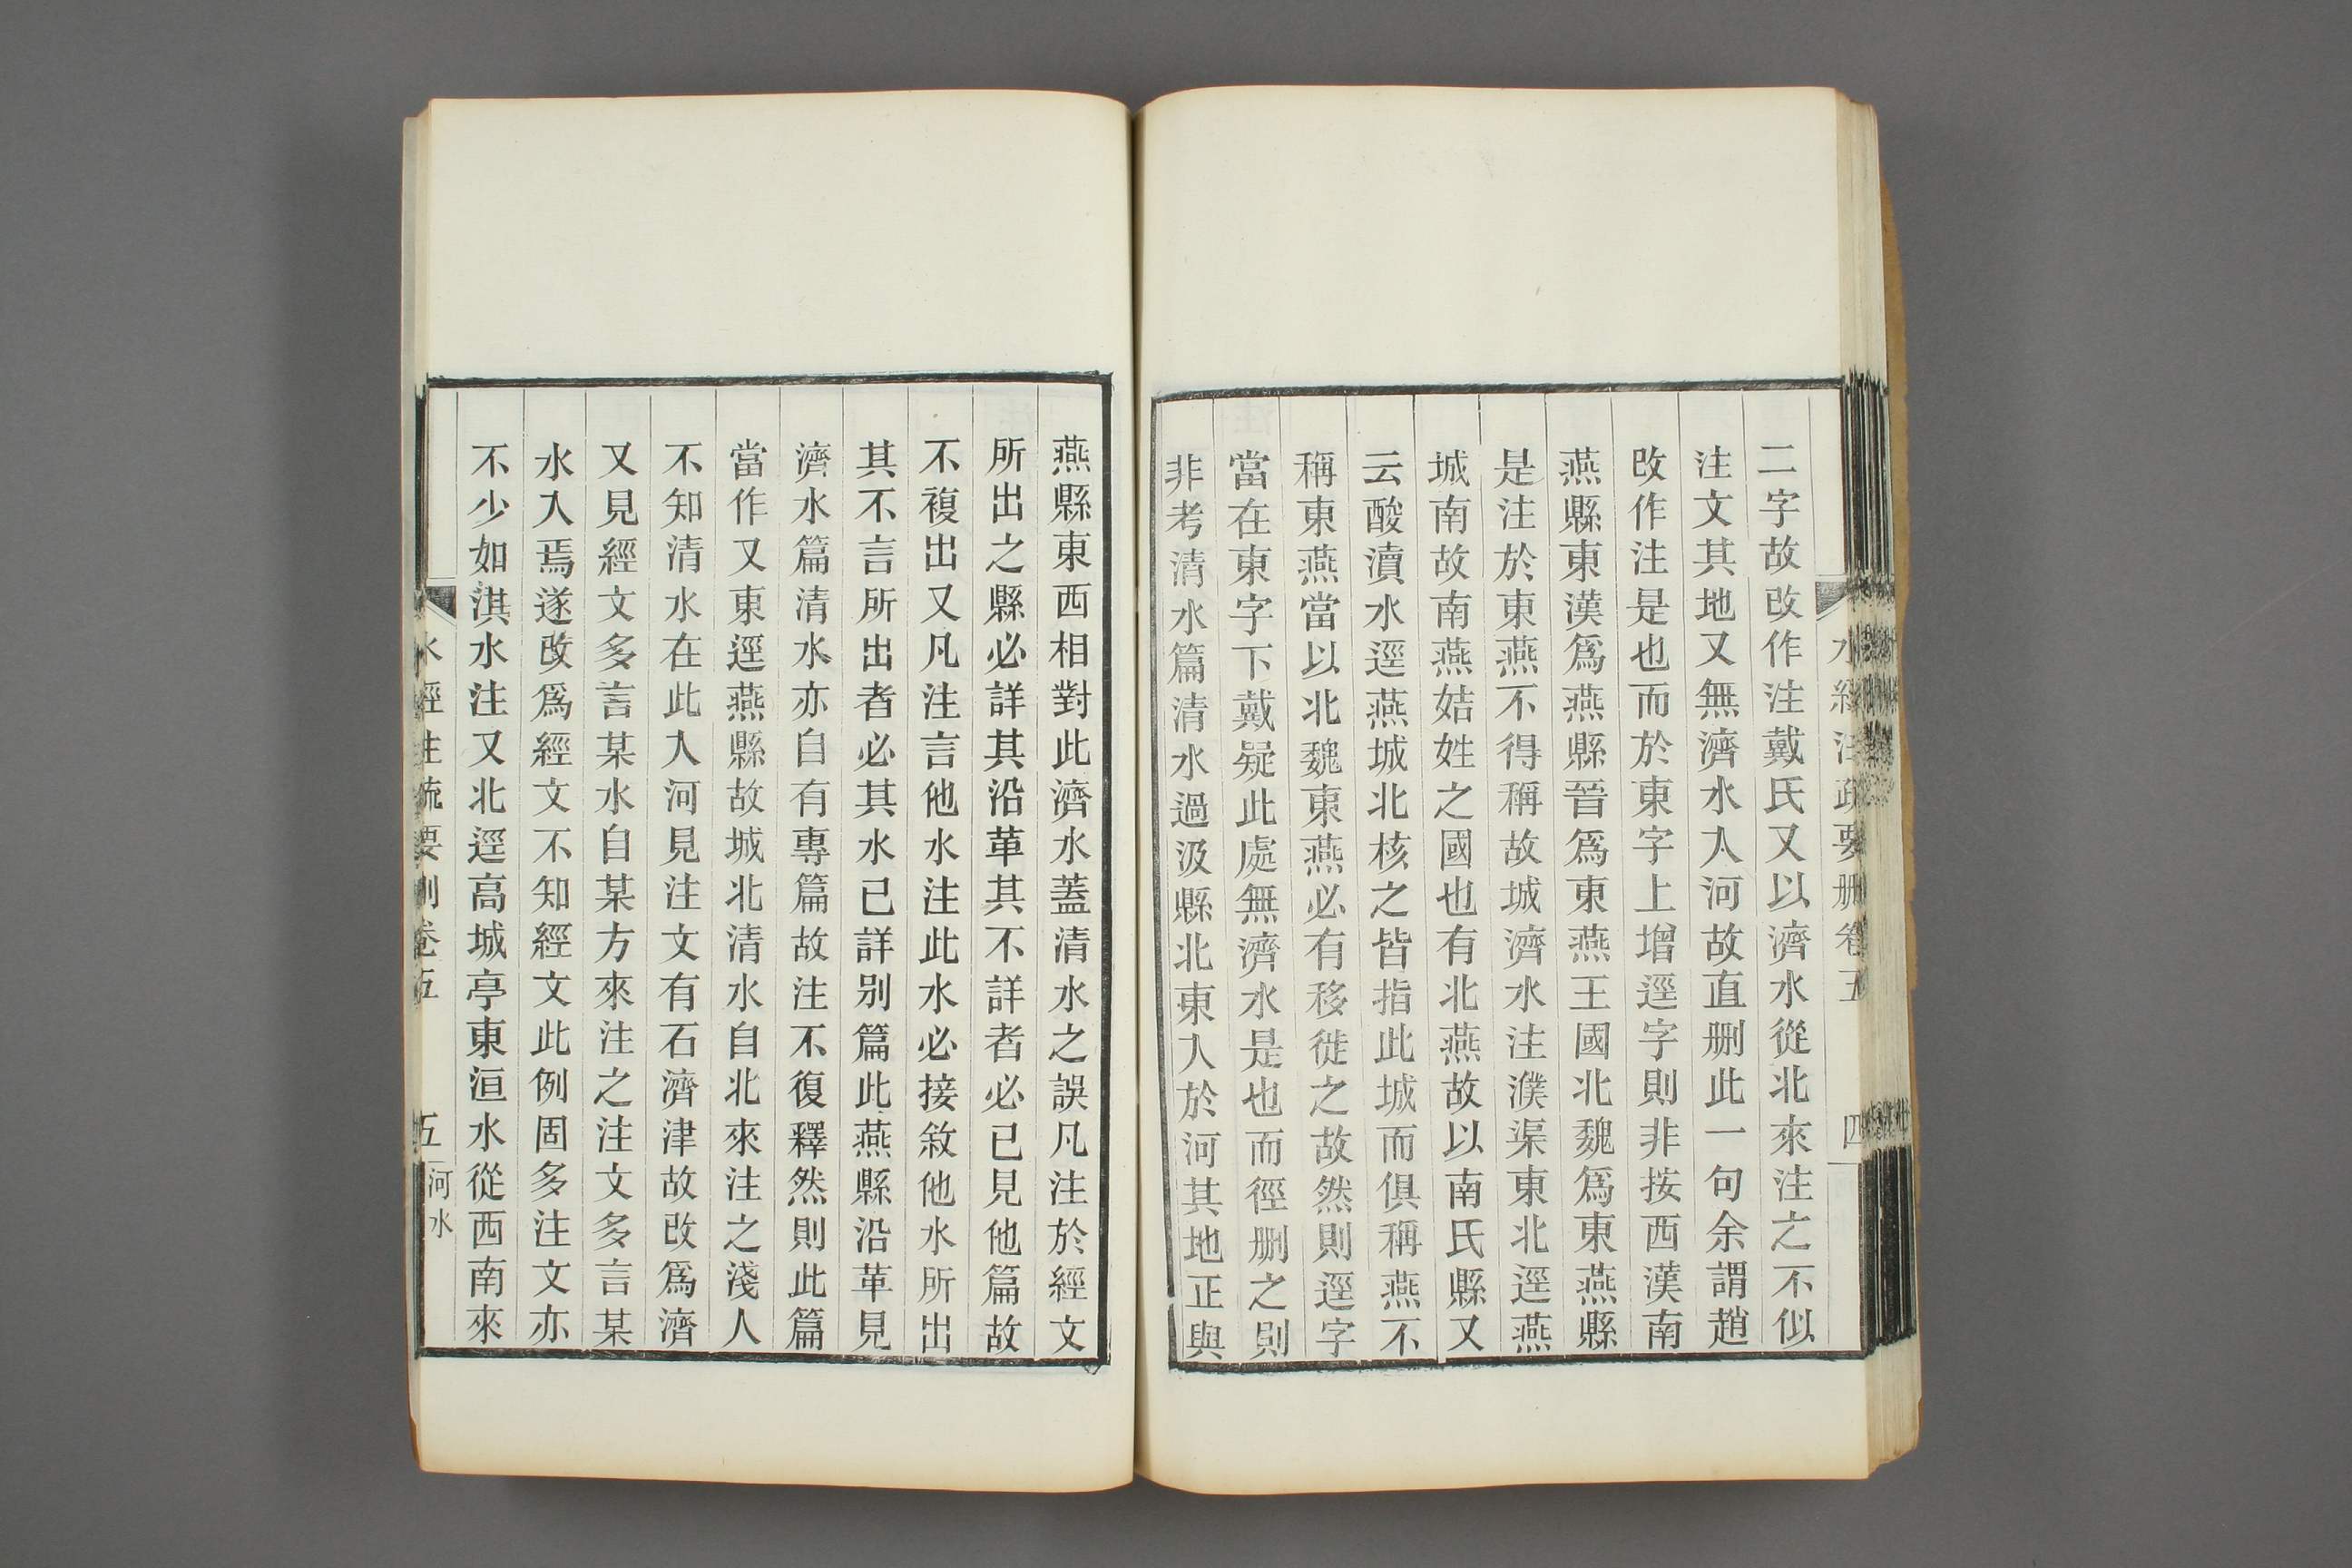 水經注疏要删卷五
四
二字故改作注戴氏又以濟水從北來注之不似
注文其地又無濟水入河故直删此一句余謂趙
改作注是也而於東字上增逕字則非按西漢南
燕縣東漢爲燕縣晉爲東燕王國北魏爲東燕縣
是注於東燕不得稱故城濟水注濮渠東北逕燕
城南故南燕姞姓之國也有北燕故以南氏縣又
云酸瀆水逕燕城北核之皆指此城而俱稱燕不
稱東燕當以北魏東燕必有移徙之故然則逕字
當在東字下戴疑此處無濟水是也而徑删之則
非考清水篇清水過汲縣北東入於河其地正與
燕縣東西相對此濟水蓋清水之誤凡注於經文
所出之縣必詳其沿革其不詳者必已見他篇故
不複出又凡注言他水注此水必接敘他水所出
其不言所出者必其水已詳别篇此燕縣沿革見
濟水篇清水亦自有專篇故注不復釋然則此篇
當作又東逕燕縣故城北清水自北來注之淺人
不知清水在此入河見注文有石濟津故改爲濟
又見經文多言某水自某方來注之注文多言某
水入焉遂改爲經文不知經文此例固多注文亦
不少如淇水注又北逕高城亭東洹水從西南來
水經注疏要删卷五
五
河水